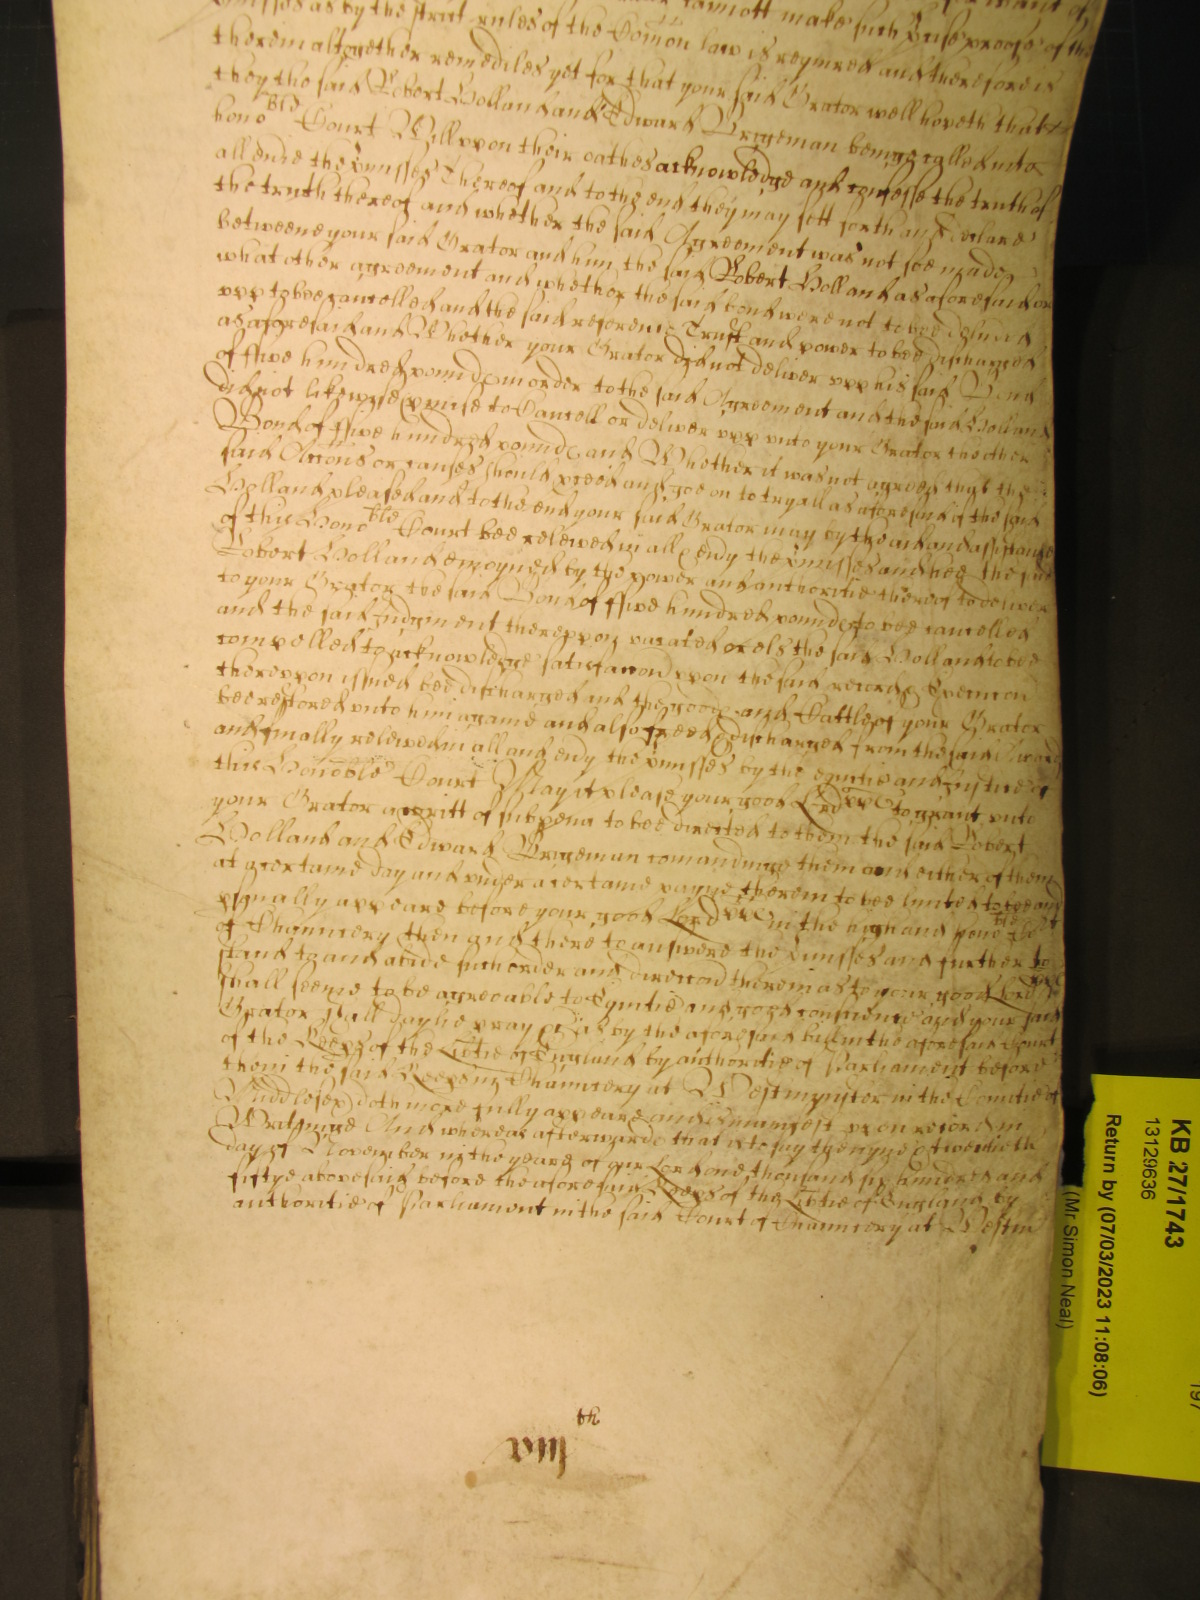 cannott make such p'cise proofe of the
p'misses as by the strict rules of the Com̃on law is required and therefore is
therein altogether remediles yet for that your said Orator well hopeth that
they the said Robert Holland and Edward Bridgeman being called into
hono^ble Court Will vppon their oathes acknowledge and confesse the truth of
all eũie the p'misses Thereof and to the end they may sett forth and declare
the truth thereof and whether the said Agreement was not soe made
Betweene your said Orator and him the said Robert Holland as aforesaid or
what other agreement and whether the said bond were not to bee deliũed
vpp to bee cancelled and the said reference Trust and power to bee discharged
as aforesaid and Whether your Orator did not deliver vpp his said Bond
of ffive hundred pounds in order to the said Agreement and the said Holland
did not likewise p'mise to Cancell or deliver vpp vnto your Orator the other
Bond of ffive hundred pounds and Whether it was not agreed that the
said Acc̃ons or causes should p'ceed and goe on to tryall as aforesaid if the said
Holland pleased and to the end your said Orator may by the aid and assistance
of this Hono^ble Court bee releived in all & eũy the p'misses and hee the said
Robert Holland enioyned by the power and authoritie thereof to deliver
to your Orator the said Bond of ffive hundred pounds to bee cancelled
and the said Judgment thereppon vacated or els the said Holland to bee
compelled to acknowledge satisfacc̃on vppon the said record & Execuc̃on
thereppon issued bee discharged and the goods and Cattles of your Orator
bee restored vnto him againe and also freed & discharged from the said
and finally releived in all and eũy the p'misses by the equitie and Justice of
this Hono^ble Court May it please your good Lordpps to graunt vnto
your Orator a writt of subpena to bee directed to them the said Robert
Holland and Edward Bridgeman comanding them and either of them
at a certaine day and vnder a certaine payne therein to bee limited to bee and
p'sonally appeare before your good Lordpps in the high and hono^ble Court
of Chauncery then and there to answere the p'misses and further to
stand to and abide such order and direcc̃on therein as to your good Lordpps
shall seeme to be agreeable to Equitie and good conscience and your said
Orator shall daylie pray &c As by the aforesaid bill in the aforesaid Court
of the Keep's of the Lib'tie of England by authoritie of Parliament before
them the said Keep's in Chauncery at Westminster in the Countie of
Middlesex doth more fully appeare and is manifest vpon record in
Writinge And whereas afterwards that is to say the nyne & twentieth
day of November in the yeare of our Lord one thousand six hundred and
fiftye abovesaid before the aforesaid Keep's of the Lib'tie of England by
authoritie of Parliament in the said Court of Chauncery at Westm
KB 27/1743
13129636
Return by (07/03/2023 11:08:06)
(Mr Simon Neal)
197